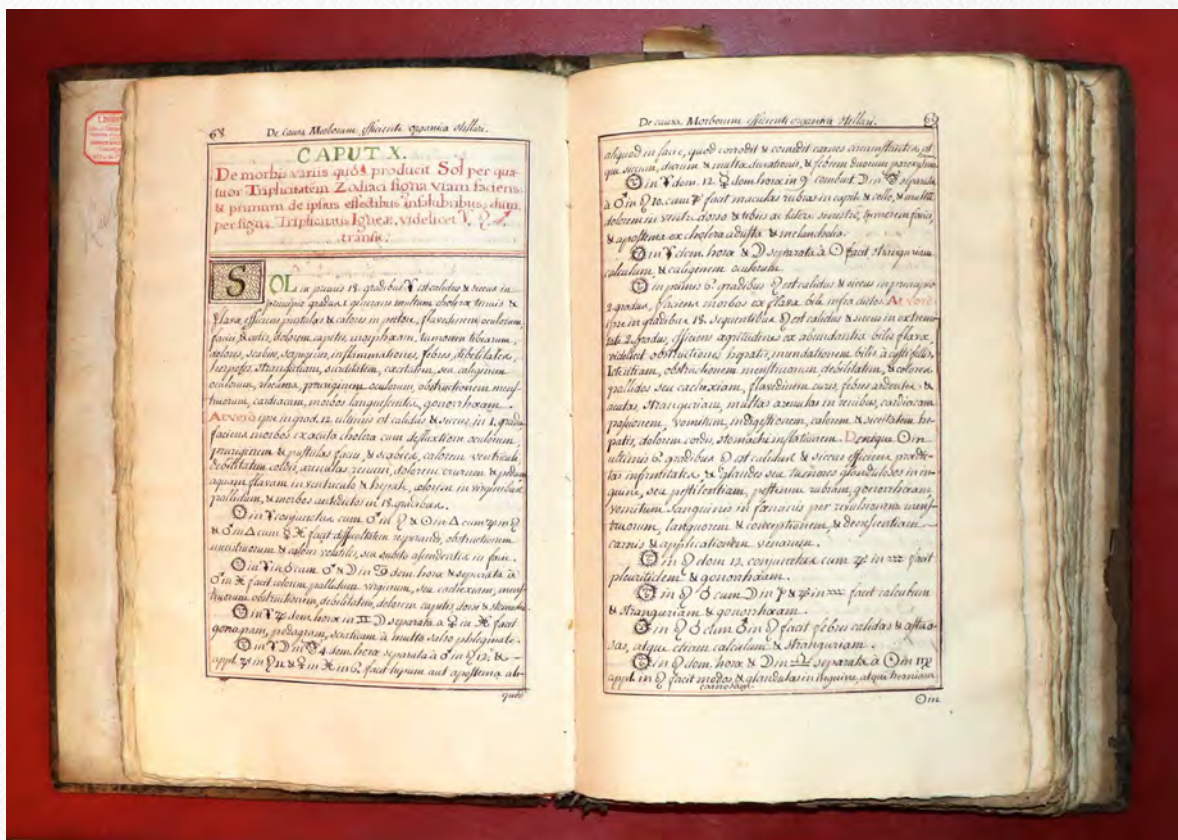 68 De causa Morborum efficienti organica stellari.
CAPUT X.
De morbis variis quos producit Sol per qua-
tuor Triplicitatem Zodiaci signa viam faciens:
& primum de ipsius effectibus insalubribus, dum
per signa Triplicitatis Igneæ, videlicet ♈, ♌, ♐,
transit.
SOL in primis 18. gradibus ♈ est calidus & siccus in
principio gradus 1. generans multum cholerae tenuis &
flavæ, efficiens pustulas & calores in pectore, flavedinem oculorum,
faciei, & cutis, dolorem capitis, morphæam, tumorem tibiarum,
dolores, scabiem, inflammationes, febres, debilitatem,
herpetes, surditatem, cæcitatem, seu caliginem
oculorum, rheuma, pruriginem oculorum, obstructionem mens-
truorum, cardiacam, morbos languescentes, gonorrhœam.
At vero ipse in grad. 12. ultimis est calidus & siccus in 1. gradu
faciens morbos ex acuta cholera cum defluxione oculorum,
pruriginem & pustulas faciei, & scabiem, calorem ventriculi,
debilitatem arenulas renum, dolorem crurum & pedum
aquam flavam in ventriculo & hepate, colorem in virginibus
pallidum, & morbos antedictos in 18. gradibus.
☉ in ♈ conjunctus cum ♂ in ♌ & ☉ in △ cum ♃ in ♌
& ♂ in △ cum ☿ ♓ facit difficultatem respirandi, obstructionem
menstruorum & calores volatiles, seu subito ascendentes in facie.
☉ in ♈ in ☌ cum ♂ & ☽ in ♋ dom. horæ & separata à
♂ in ♓ facit colorem pallidum virginum, seu cachexiam, mens-
truorum obstructionem, debilitatem, dolorem capitis, dorsi & stomachi.
☉ in ♈ ♃ dom. horæ in ♊ ☽ separata à ♀ in ♓ facit
gonagram, podagram, sciaticam à multo salso phlegmate.
☉ in ♈ ☽ in 4. dom. horæ separata à ♂ in ♌ 12. &
appl. in ♌ 11 & ☿ in ♓ in 6. facit lupum aut apostema ali-
quod
De causa Morborum efficienti organica stellari. 69
aliquod in facie, quod corrodit & comedit carnes circumstantes, at-
que siccum, durum & multæ durationis, & febrem duorum
☉ in ♈ dom. 12. ☿ dom. horæ in 9. combust. ☽ in separata
à ♂ in ♌ 10. cum facit maculas rubras in capite & collo, & multum
dolorem in ventre dorso & tibiis ac latere sinistro, tumorem faciei,
& apostema ex cholera adusta & melancholia.
☉ in ♈ dom. horæ & ☽ separata à ☉ facit stranguriam
calculum, & caliginem oculorum.
☉ in primis 6. gradibus ♌ est calidus & siccus in principio
2. gradus, faciens morbos ex flava bile infra dictos. At vero
ipse in gradibus 18. sequentibus ♌ est calidus & siccus in extremo
2. gradus, efficiens ægritudines ex abundantia bilis flavæ,
videlicet obstructiones hepatis, inundationem bilis à cysti fellis,
Icteritiam, obstructionem menstruorum, debilitatem, & colores
pallidos seu cachexiam, flavedinem cutis, febres ardentes &
acutas, stranguriam, multas arenulas in renibus, cardiacam
passionem, vomitum, indigestionem, calorem & siccitatem he-
patis, dolorem cordis, stomachi inflationem. Denique ☉ in
ultimis 6. gradibus ♌ est calidus & siccus efficiens prædic-
tas infirmitates, & glandes seu tumores glandulosos in in-
guine, seu pestilentiam, gonorrhœam,
vomitum sanguinis in fœminis per revulsionem mens-
truorum, languorem & corruptionem, & decrescentiam
carnis & applicationem venarum.
☉ in ♌ dom. 12. conjunctus cum ♃ in ♒ facit
pleuritidem & gonorrhœam.
☉ in ♌ ☍ cum ☽ in & ♃ in ♒ facit calculum
& stranguriam & gonorrhœam.
☉ in ♌ ☌ cum in ♌ facit febres calidas & æstuo-
sas, atque etiam calculum & stranguriam.
☉ in ♌ dom. horæ & ☽ in ♎ separata à ☉ in ♍
appl. in ♌ facit nodos, & glandulas in inguine, atque herniam
carnosam.
☉ in